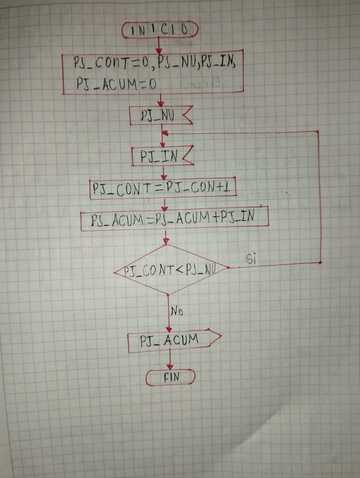 INICIO
PJ_CONT=0,PJ_NU,PJ_IN,
PJ_ACUM=0
PJ_NU
PJ_IN
PJ_CONT=PJ_CON+1
PJ_ACUM=PJ_ACUM+PJ_IN
PJ_CONT<PJ_NU
Si
No
PJ_ACUM
FIN